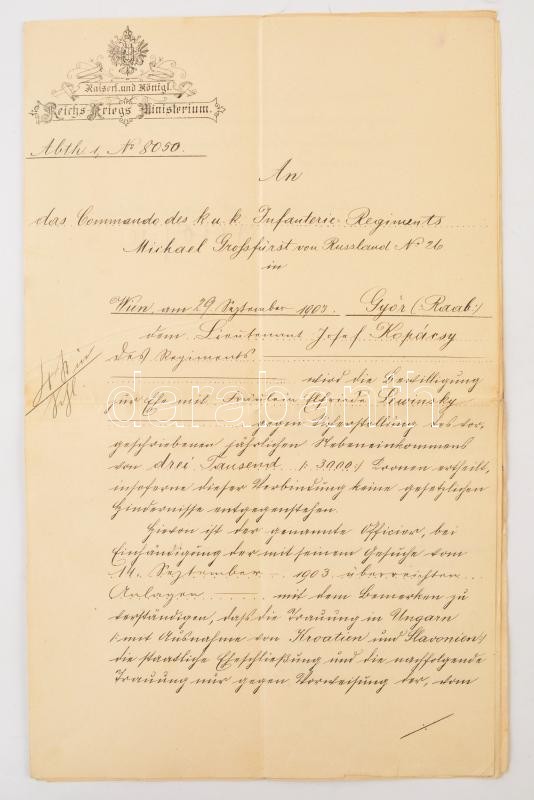 Kaiserl. und Königl.
Reichs-Kriegs-Ministerium.
Abth 1, № 8050.
An
das Commando des k. u. k. Infanterie-Regiments
Michael Grossfürst von Russland № 26
in
Wien, am 29. September 1903. Győr (Raab:)
dem Lieutenant Josef Kopácsy
des Regiments
wird die Bewilligung
zur Ehe mit Fräulein Elfriede Lewinsky
gegen Sicherstellung des vor-
geschriebenen jährlichen Nebeneinkommens
von drei Tausend /: 3000 :/ Kronen ertheilt,
insoferne dieser Verbindung keine gesetzlichen
Hindernisse entgegenstehen.
Hievon ist der genannte Officier, bei
Einhändigung der mit seinem Gesuche vom
14. September 1903 überreichten
Anlagen mit dem Bemerken zu
verständigen, dass die Trauung in Ungarn
/: mit Ausnahme von Kroatien und Slavonien :/
die staatliche Eheschließung und die nachfolgende
Trauung nur gegen Vorweisung der, vom
darabanth